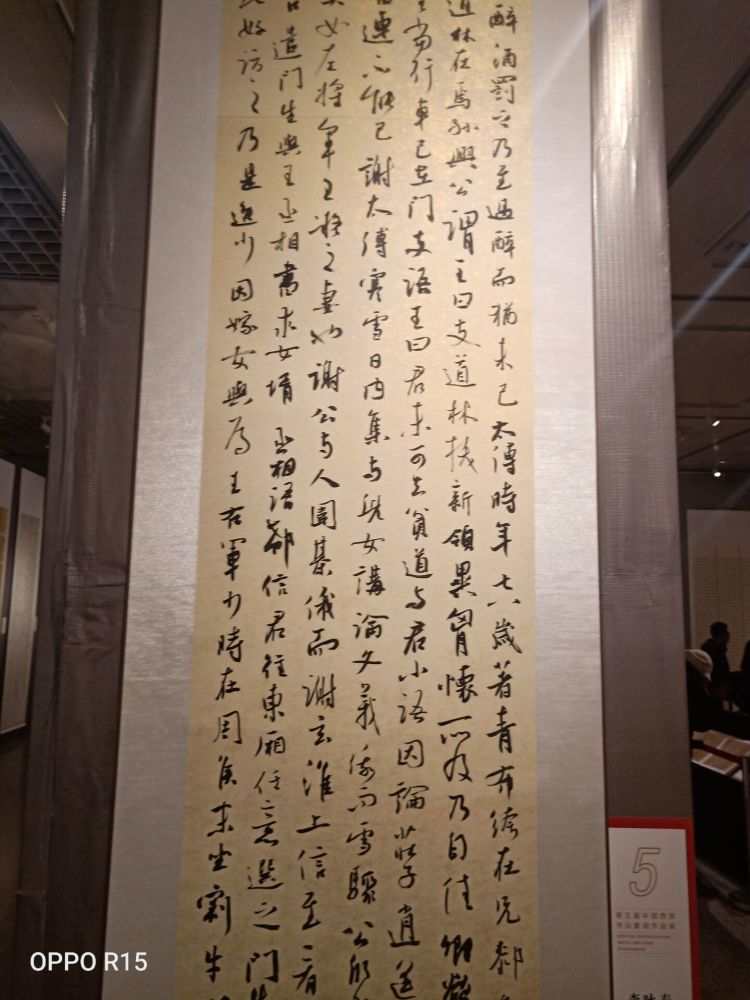 醉酒罰之乃至過醉而猶未已太傅時年七八歲著青布絝在兄
道林在焉孫興公謂王曰支道林拔新領異胷懷所及乃自佳卿欲
當行車已在門支語王曰君未可去貧道与君小語因論莊子逍遥
連不能已謝太傅寒雪日内集与兒女講論文義俄而雪驟公欣
女左將軍王凝之妻也謝公与人圍棊俄而謝玄淮上信至看
遣門生與王丞相書求女壻丞相語郗信君往東廂任意選之門生
好訪之乃是逸少因嫁女與焉王右軍少時在周侯末坐割牛
5
第五届中国西部
书法篆刻作品展
OPPO R15